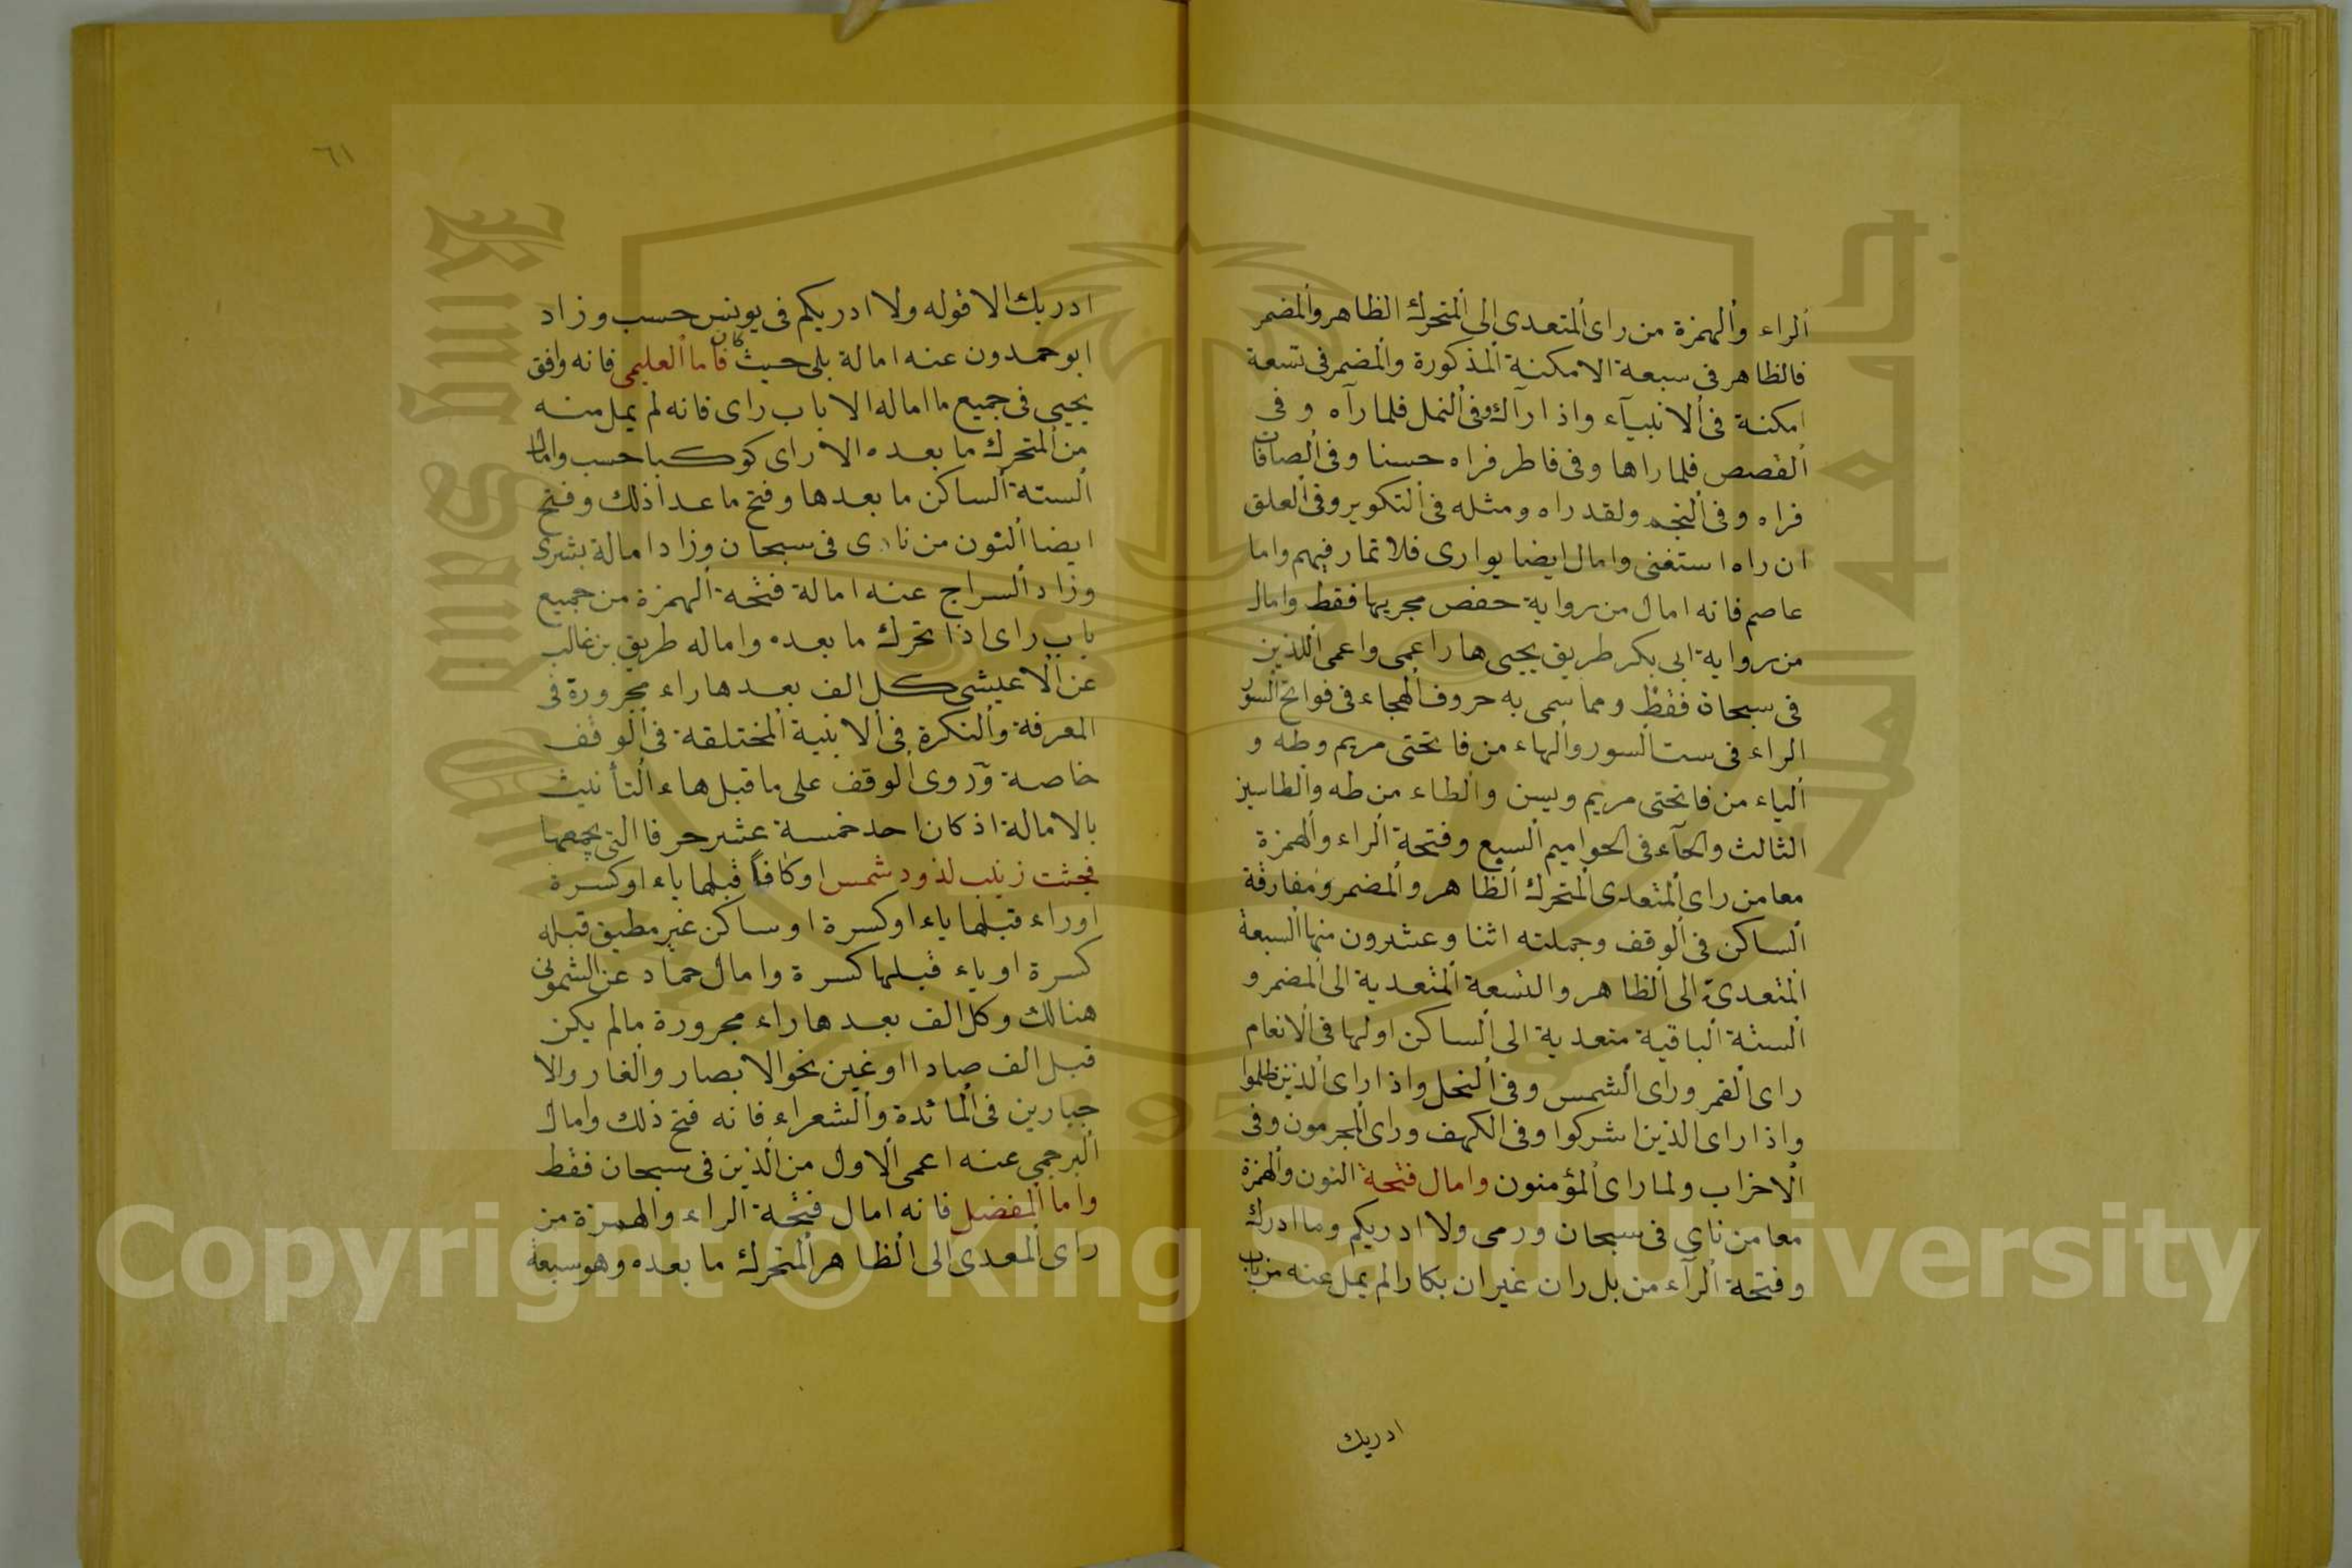 الراء والهمزة من راى المتعدى الى المتحرك الظاهر والمضمر
فالظاهر فى سبعة الامكنة المذكورة والمضمر فى تسعة
امكنة فى الانبيآء واذا رآك وفى النمل فلما رآه وفى
القصص فلما راها وفى فاطر فراه حسنا وفى الصافات
فراه وفى النجم ولقد راه ومثله فى التكوير وفى العلق
ان راه استغنى وامال ايضا يوارى فلا تمار فيهم واما
عاصم فانه امال من رواية حفص مجريها فقط وامال
من رواية ابى بكر طريق يحيى هار اعمى واعمى اللذين
فى سبحان فقط ومما سمى به حروف الهجاء فى فواتح السور
الراء فى ست السور والهاء من فاتحتى مريم وطه و
الياء من فاتحتى مريم ويسن والطاء من طه والطاسيز
الثالث والحآء فى الحواميم السبع وفتحة الراء والهمزة
معا من راى المتعدى المتحرك الظاهر والمضمر ومفارقة
الساكن فى الوقف وجملته اثنا وعشرون منها السبعة
المتعدى الى الظاهر والتسعة المتعدية الى المضمر و
الستة الباقية متعدية الى الساكن اولها فى الانعام
راى القمر وراى الشمس وفى النحل واذا راى الذين ظلموا
واذا راى الذين اشركوا وفى الكهف وراى المجرمون وفى
الاحزاب ولما راى المؤمنون وامال فتحة النون والهمزة
معا من ناى فى سبحان ورمى ولا ادريكم وما ادرك
وفتحة الرآء من بل ران غير ان بكارا لم يمل عنه من باب
ادريك
٦١
ادريك الا قوله ولا ادريكم فى يونس حسب وزاد
ابو حمدون عنه امالة بلى حيث كان فاما العليمى فانه وافق
يحيى فى جميع ما اماله الا باب راى فانه لم يمل منه
من المتحرك ما بعده الا راى كوكبا حسب وامال
الستة الساكن ما بعدها وفتح ما عدا ذلك وفتح
ايضا النون من نادى فى سبحان وزاد امالة بشرى
وزاد السراج عنه امالة فتحة الهمزة من جميع
باب راى اذا تحرك ما بعده واماله طريق بن غالب
عن الاعيشى كل الف بعدها راء مجرورة فى
المعرفة والنكرة فى الابنية المختلفة فى الوقف
خاصة وروى الوقف على ما قبل هاء التأنيث
بالامالة اذ كان احد خمسة عشر حرفا التى يجمعها
فجثت زينب لذود شمس او كافا قبلها ياء او كسرة
او راء قبلها ياء او كسرة او ساكن غير مطبق قبله
كسرة او ياء قبلها كسرة وامال حماد عن الشمونى
هنالك وكل الف بعدها راء مجرورة مالم يكن
قبل الف صادا او غين نحو الابصار والغار والا
جبارين فى المائدة والشعراء فانه فتح ذلك وامال
البرجمى عنه اعمى الاول من الذين فى سبحان فقط
واما المفضل فانه امال فتحة الراء والهمزة من
راى المعدى الى الظاهر المتحرك ما بعده وهو سبعة
Copyright © King Saud University